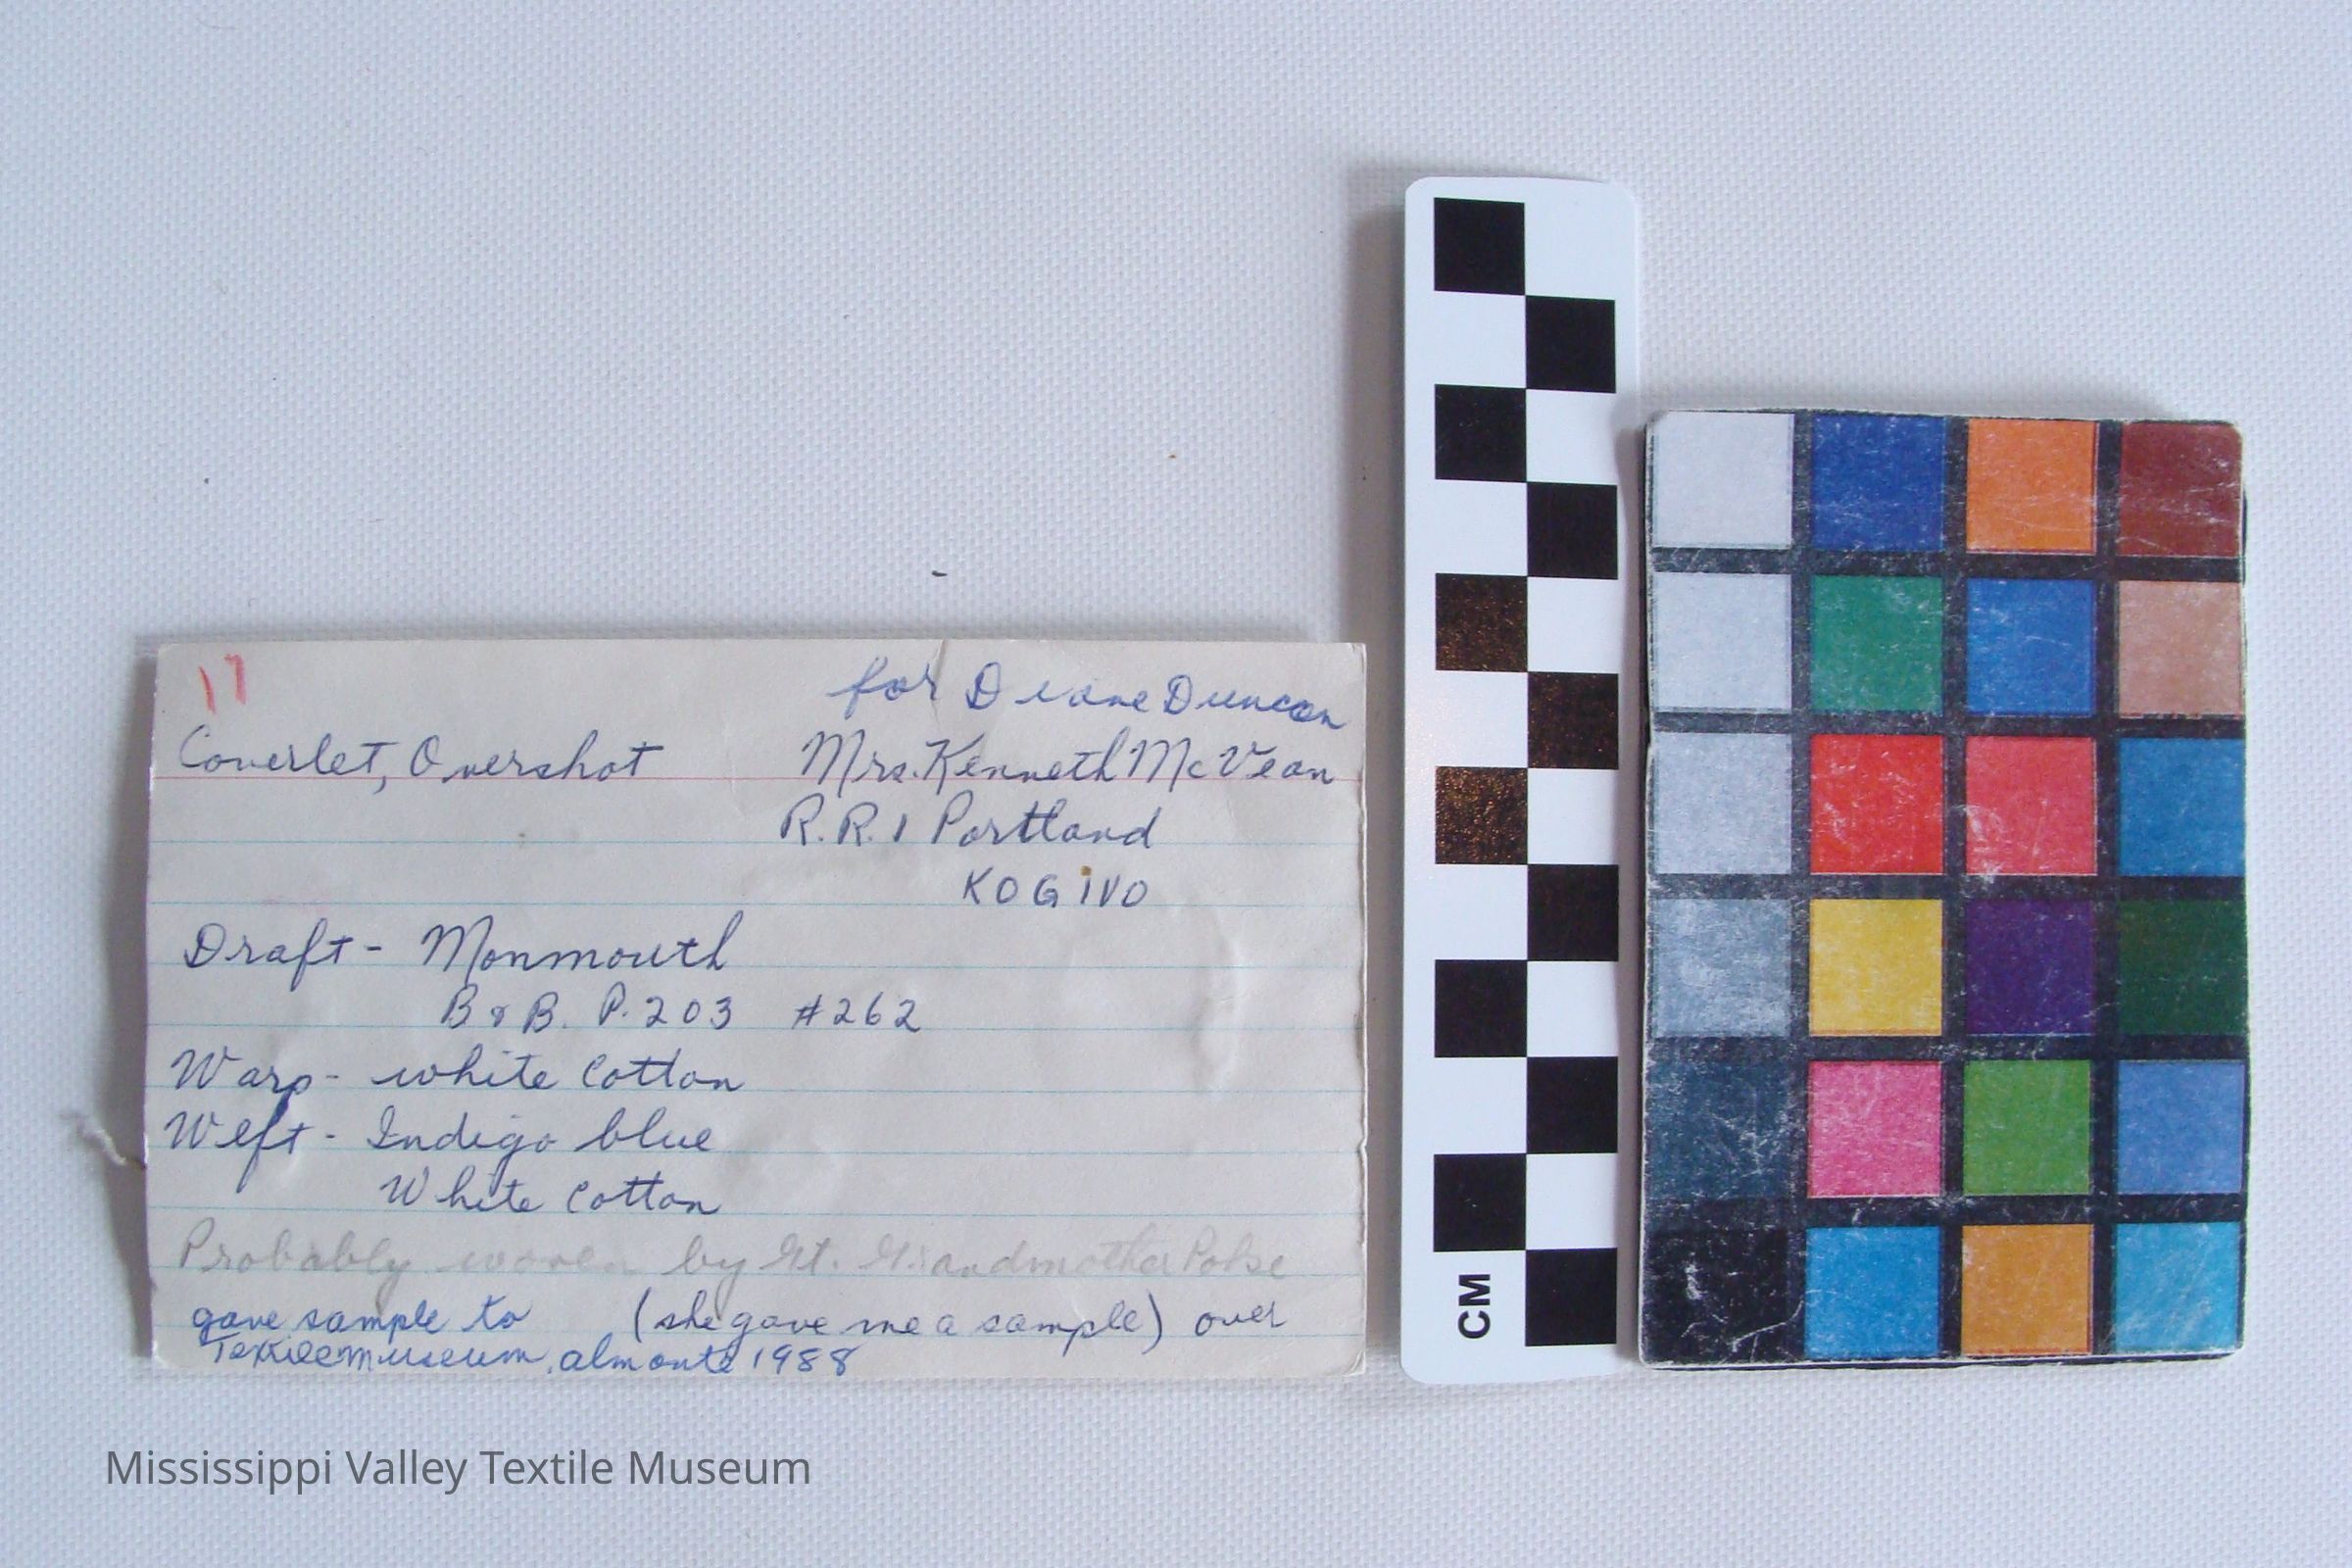 17
for Diane Duncan
Coverlet, Overshot Mrs. Kenneth McVean
R.R. 1 Portland
K0G 1V0
Draft - Monmouth
B & B. P. 203 #262
Warp - white cotton
Weft - Indigo blue
White cotton
Probably woven by Gt. Grandmother
gave sample to (she gave me a sample) over
Textile museum, almonte 1988
CM
Mississippi Valley Textile Museum